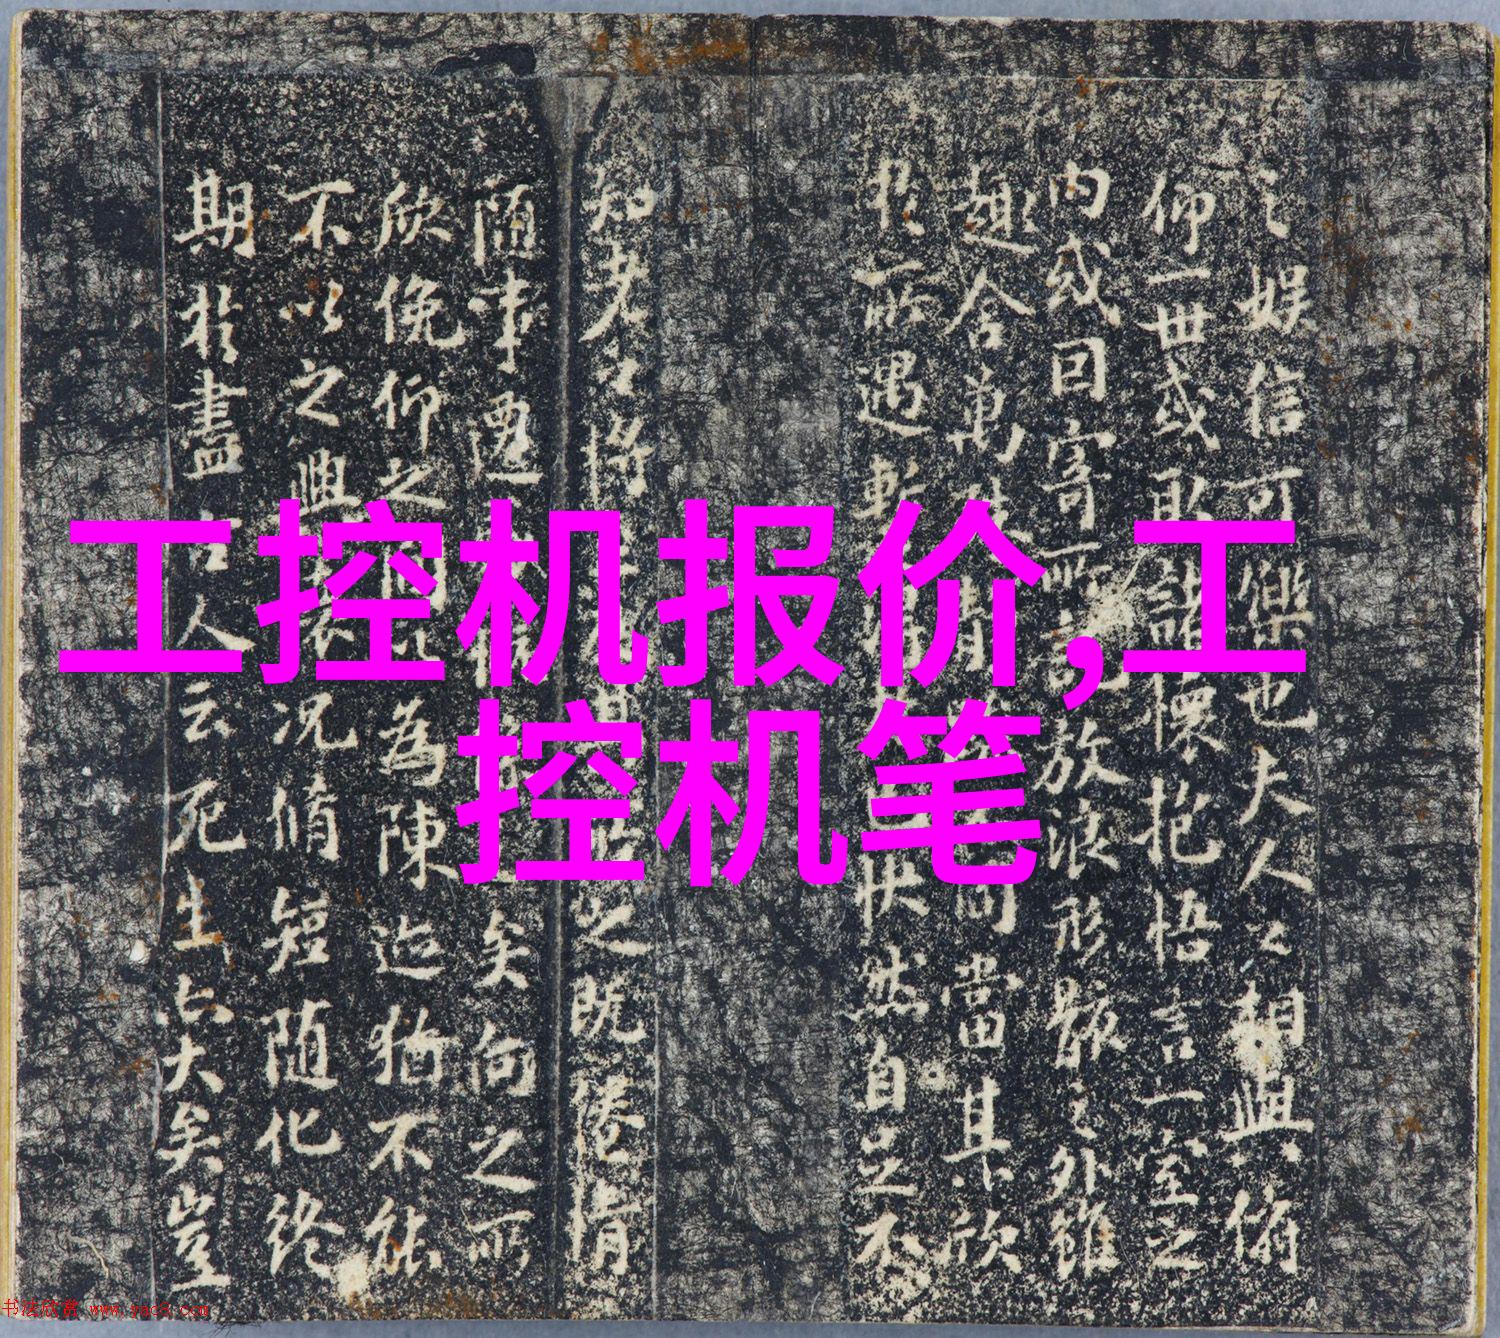 工控机报价,工
控机笔
之娱信可樂也夫人之相與俯
仰一丗或取諸懷抱悟言一室之
内或因寄所託放浪形骸之外雖
趣舍萬同當其欣
於所遇暫快然自足不
知老之將之既倦情
随事遷矣向之所
欣俛仰之間以為陳迹猶不能
不以之興懷况脩短随化終
期於盡古人云死生亦大矣豈
书法欣赏 www.yac8.com